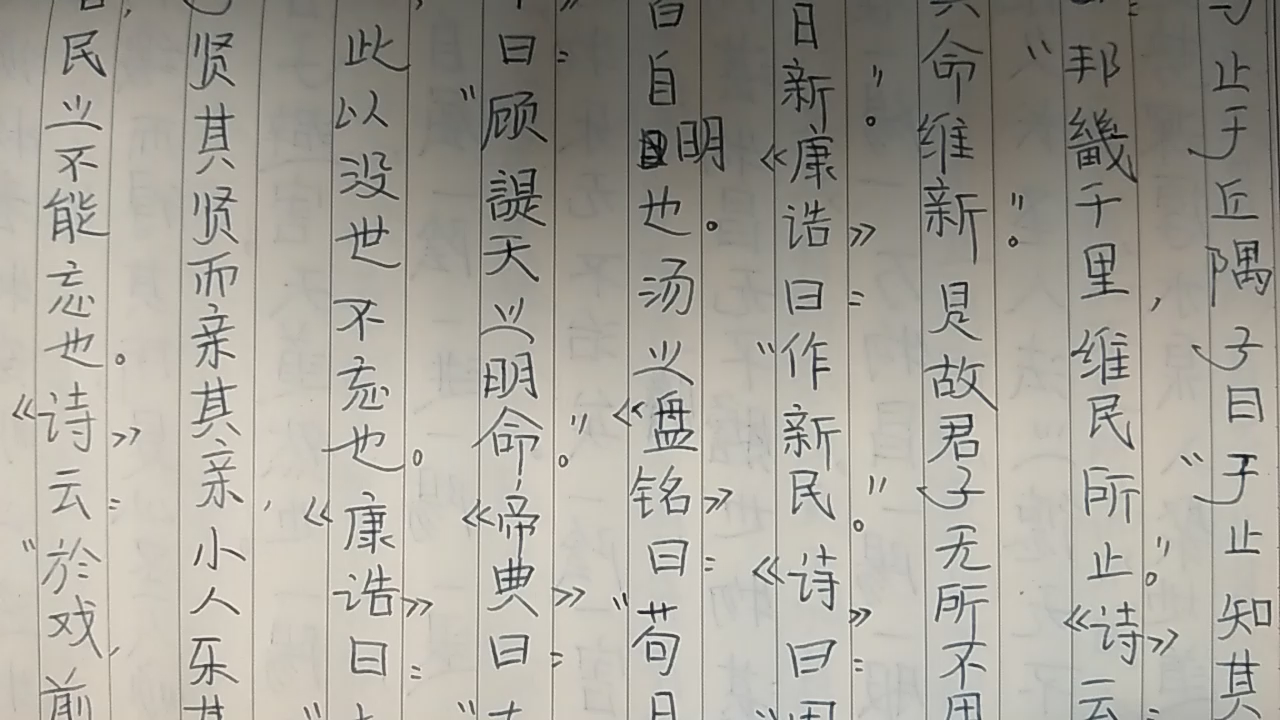 民之不能忘也。《诗》云:“於戏,前
贤其贤而亲其亲,小人乐其
此以没世不忘也。《康诰》曰:“
曰:“顾諟天之明命”。《帝典》曰:“
自明也。汤之《盘铭》曰:“苟日
日新”。《康诰》曰:“作新民”。《诗》曰:“周
其命维新”。是故君子无所不用
“邦畿千里,维民所止”。《诗》云:
止于丘隅子曰“于止知其